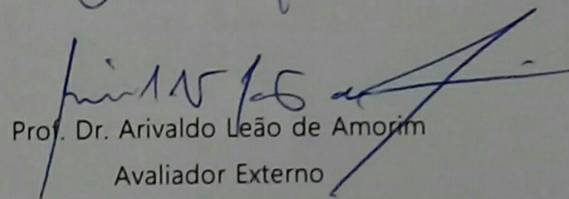 Prof. Dr. Arivaldo Leão de Amorim
Avaliador Externo